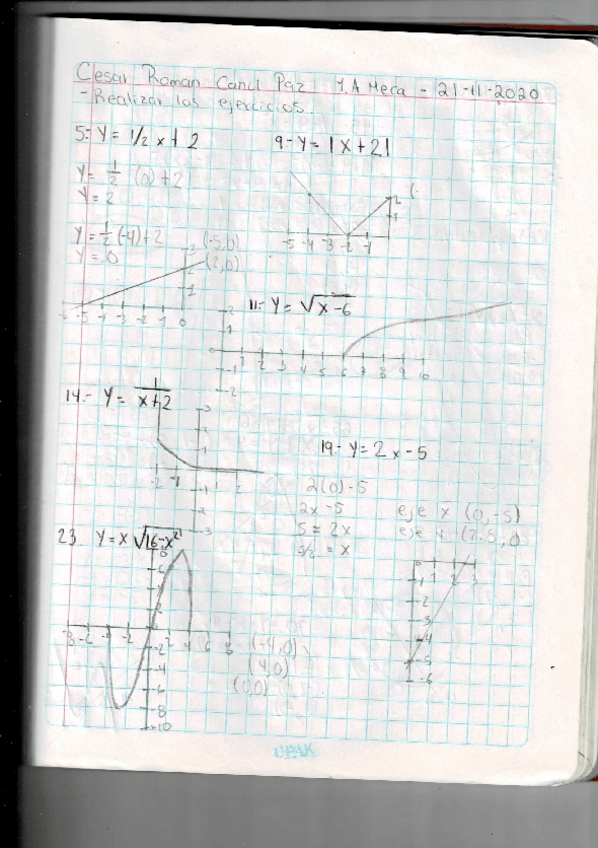 Cesar Roman Canul Paz 1.A Meca - 21-11-2020
- Realizar los ejercicios.
5- Y = 1/2 x + 2
9- Y = |x + 2|
Y = 1/2 (0) + 2
Y = 2
Y = 1/2 (-4) + 2
Y = 0
(-5,0)
(2,0)
3
1
-6 -5 -4 -3 -2 -1 0
2
1
-5 -4 -3 -2 -1
11- Y = √x-6
2
1
0 1 2 3 4 5 6 7 8 9 10
-1
-2
14.- Y = 1/x+2
3
2
1
-2 -1 2
-1
-3
19- Y = 2x - 5
2(0) - 5
2x - 5
5 = 2x
5/2 = x
eje x (0, -5)
eje y (2.5, 0
0 1 2 3
-1
-2
-3
-4
-5
-6
23. Y = x √16-x²
6
4
2
-8 -6 -4 -2 2 4 6 8
-2
-4
-6
-8
-10
(-4,0)
(4,0)
(0,0)